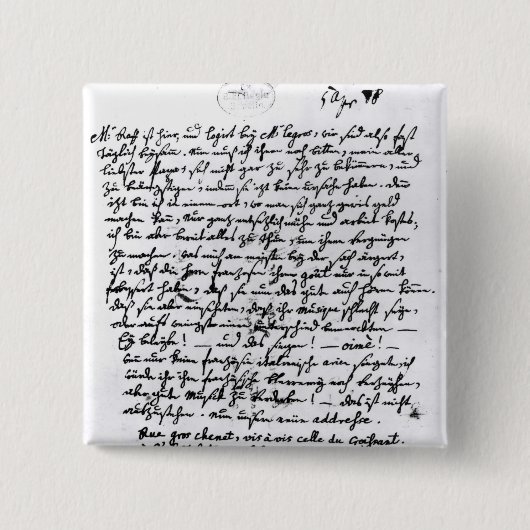 5 Apr 78
Mr Raff ist hier, und logirt bey Mr legros, wir sind also fast
täglich beysam. Nun muß ich ihnen noch bitten, mein aller
liebster Papa, sich nicht gar zu sehr zu bekümmern, und
zu beängstigen; indemm sie izt keine ursache haben. Denn
izt bin ich in einem ort, wo man sich ganz gewis geld
machen kan, Nur ganz entsezlich mühe und arbeit kostes;
ich bin aber bereit alles zu thun, um ihnen vergnügen
zu machen. was mich am meisten bey der sach ärgert,
ist, daß die franzosen ihren goût nur in so weit
verbessert haben, daß sie nun das gute auch hören können.
daß sie aber einseheten, daß ihr Musique schlecht seye,
oder aufs wenigst einen unterschied bemerckten —
Ey beleybe! — und das singen! — oimè! —
wenn nur keine französin italienische arien singete, ich
würde ihr ihre französische Plererey noch verzeyhen,
aber gute Musick zu verderben! — das ist nicht
auszustehen. Nun unsere neüe addresse.
Rue gros chenet, vis à vis celle du Croissant.